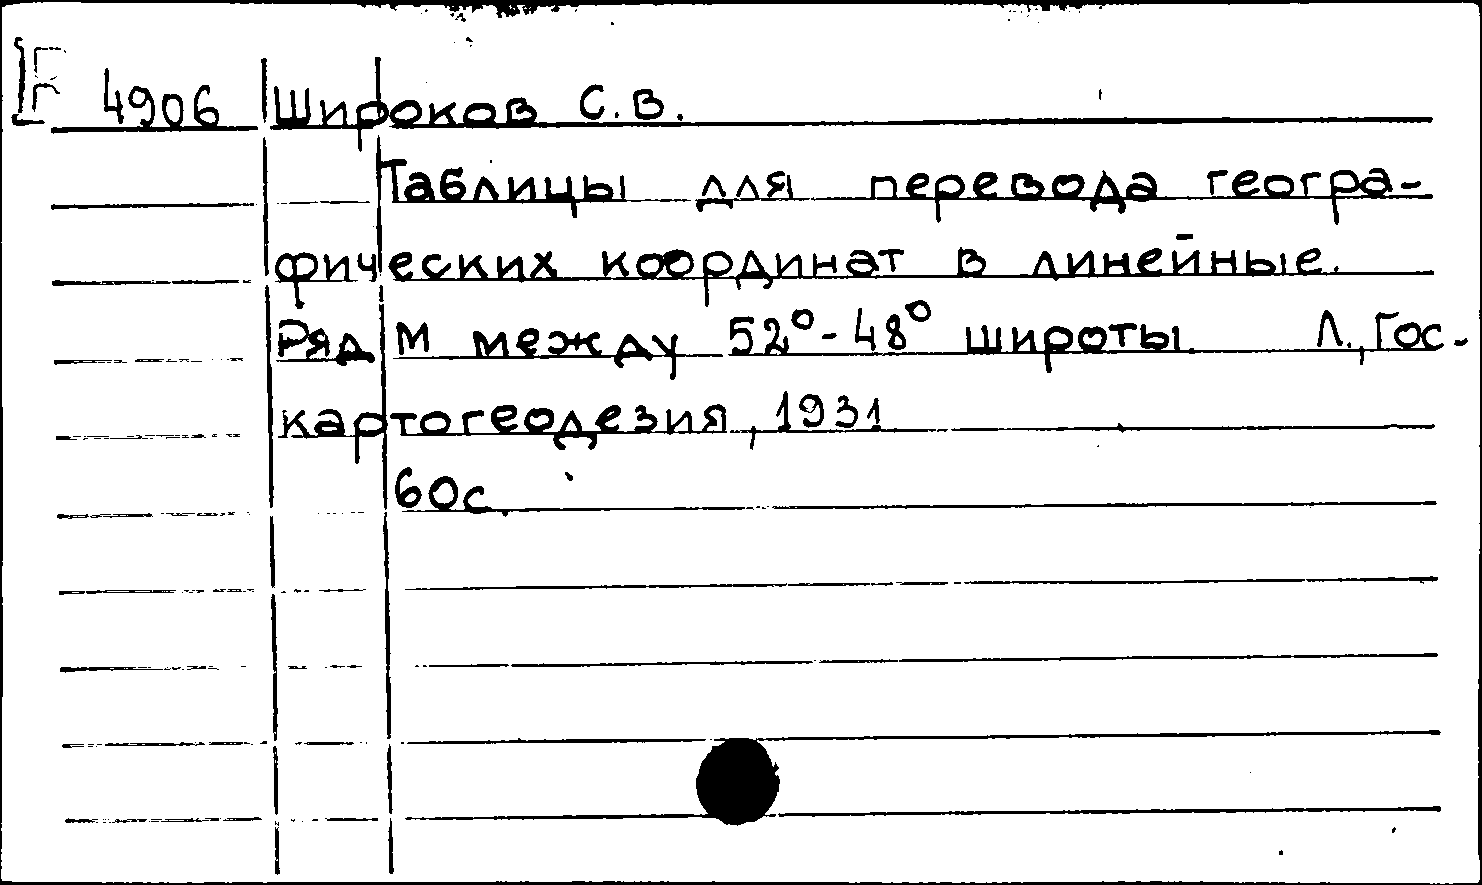 4906 Широков С.В.
Таблицы для перевода геогра-
фических координат в линейные.
Ряд М между 52°-48° широты Л., Гос-
картогеодезия, 1931
60с.